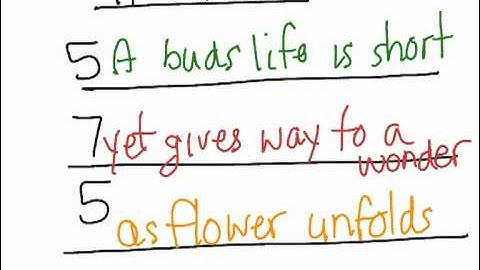 5 A buds life is short
7 yet gives way to a
wonder
5 as flower unfolds